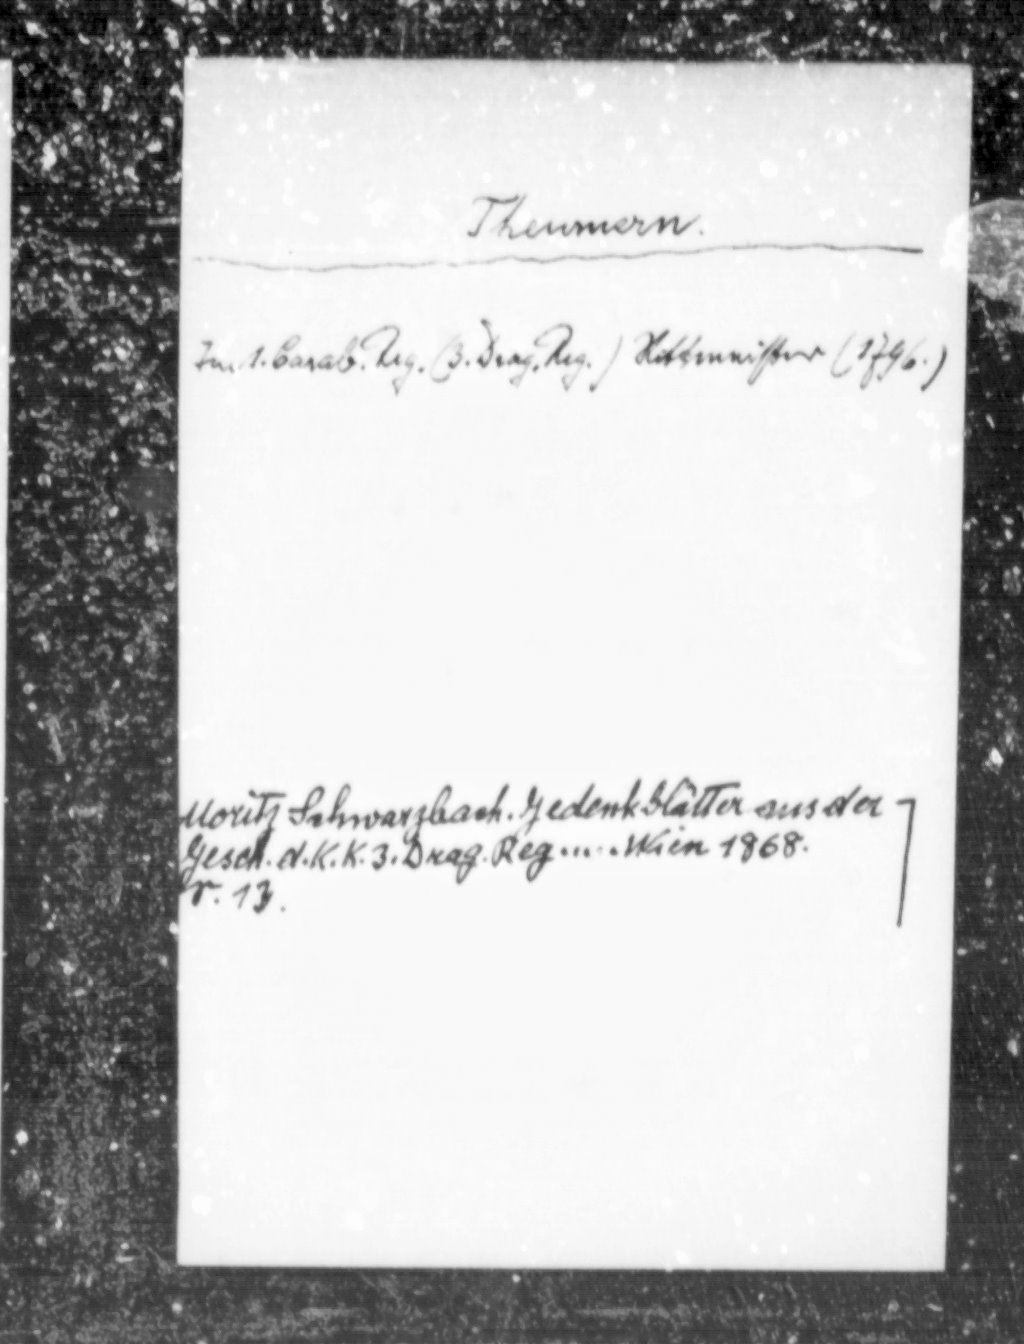 Theumern.
Im 1. Carab. Reg. (3. Drag. Reg.) Rittmeister (1796.)
Moritz Schwarzbach. Gedenkblätter aus der
Gesch. d. K. K. 3. Drag. Reg..... Wien 1868.
13.